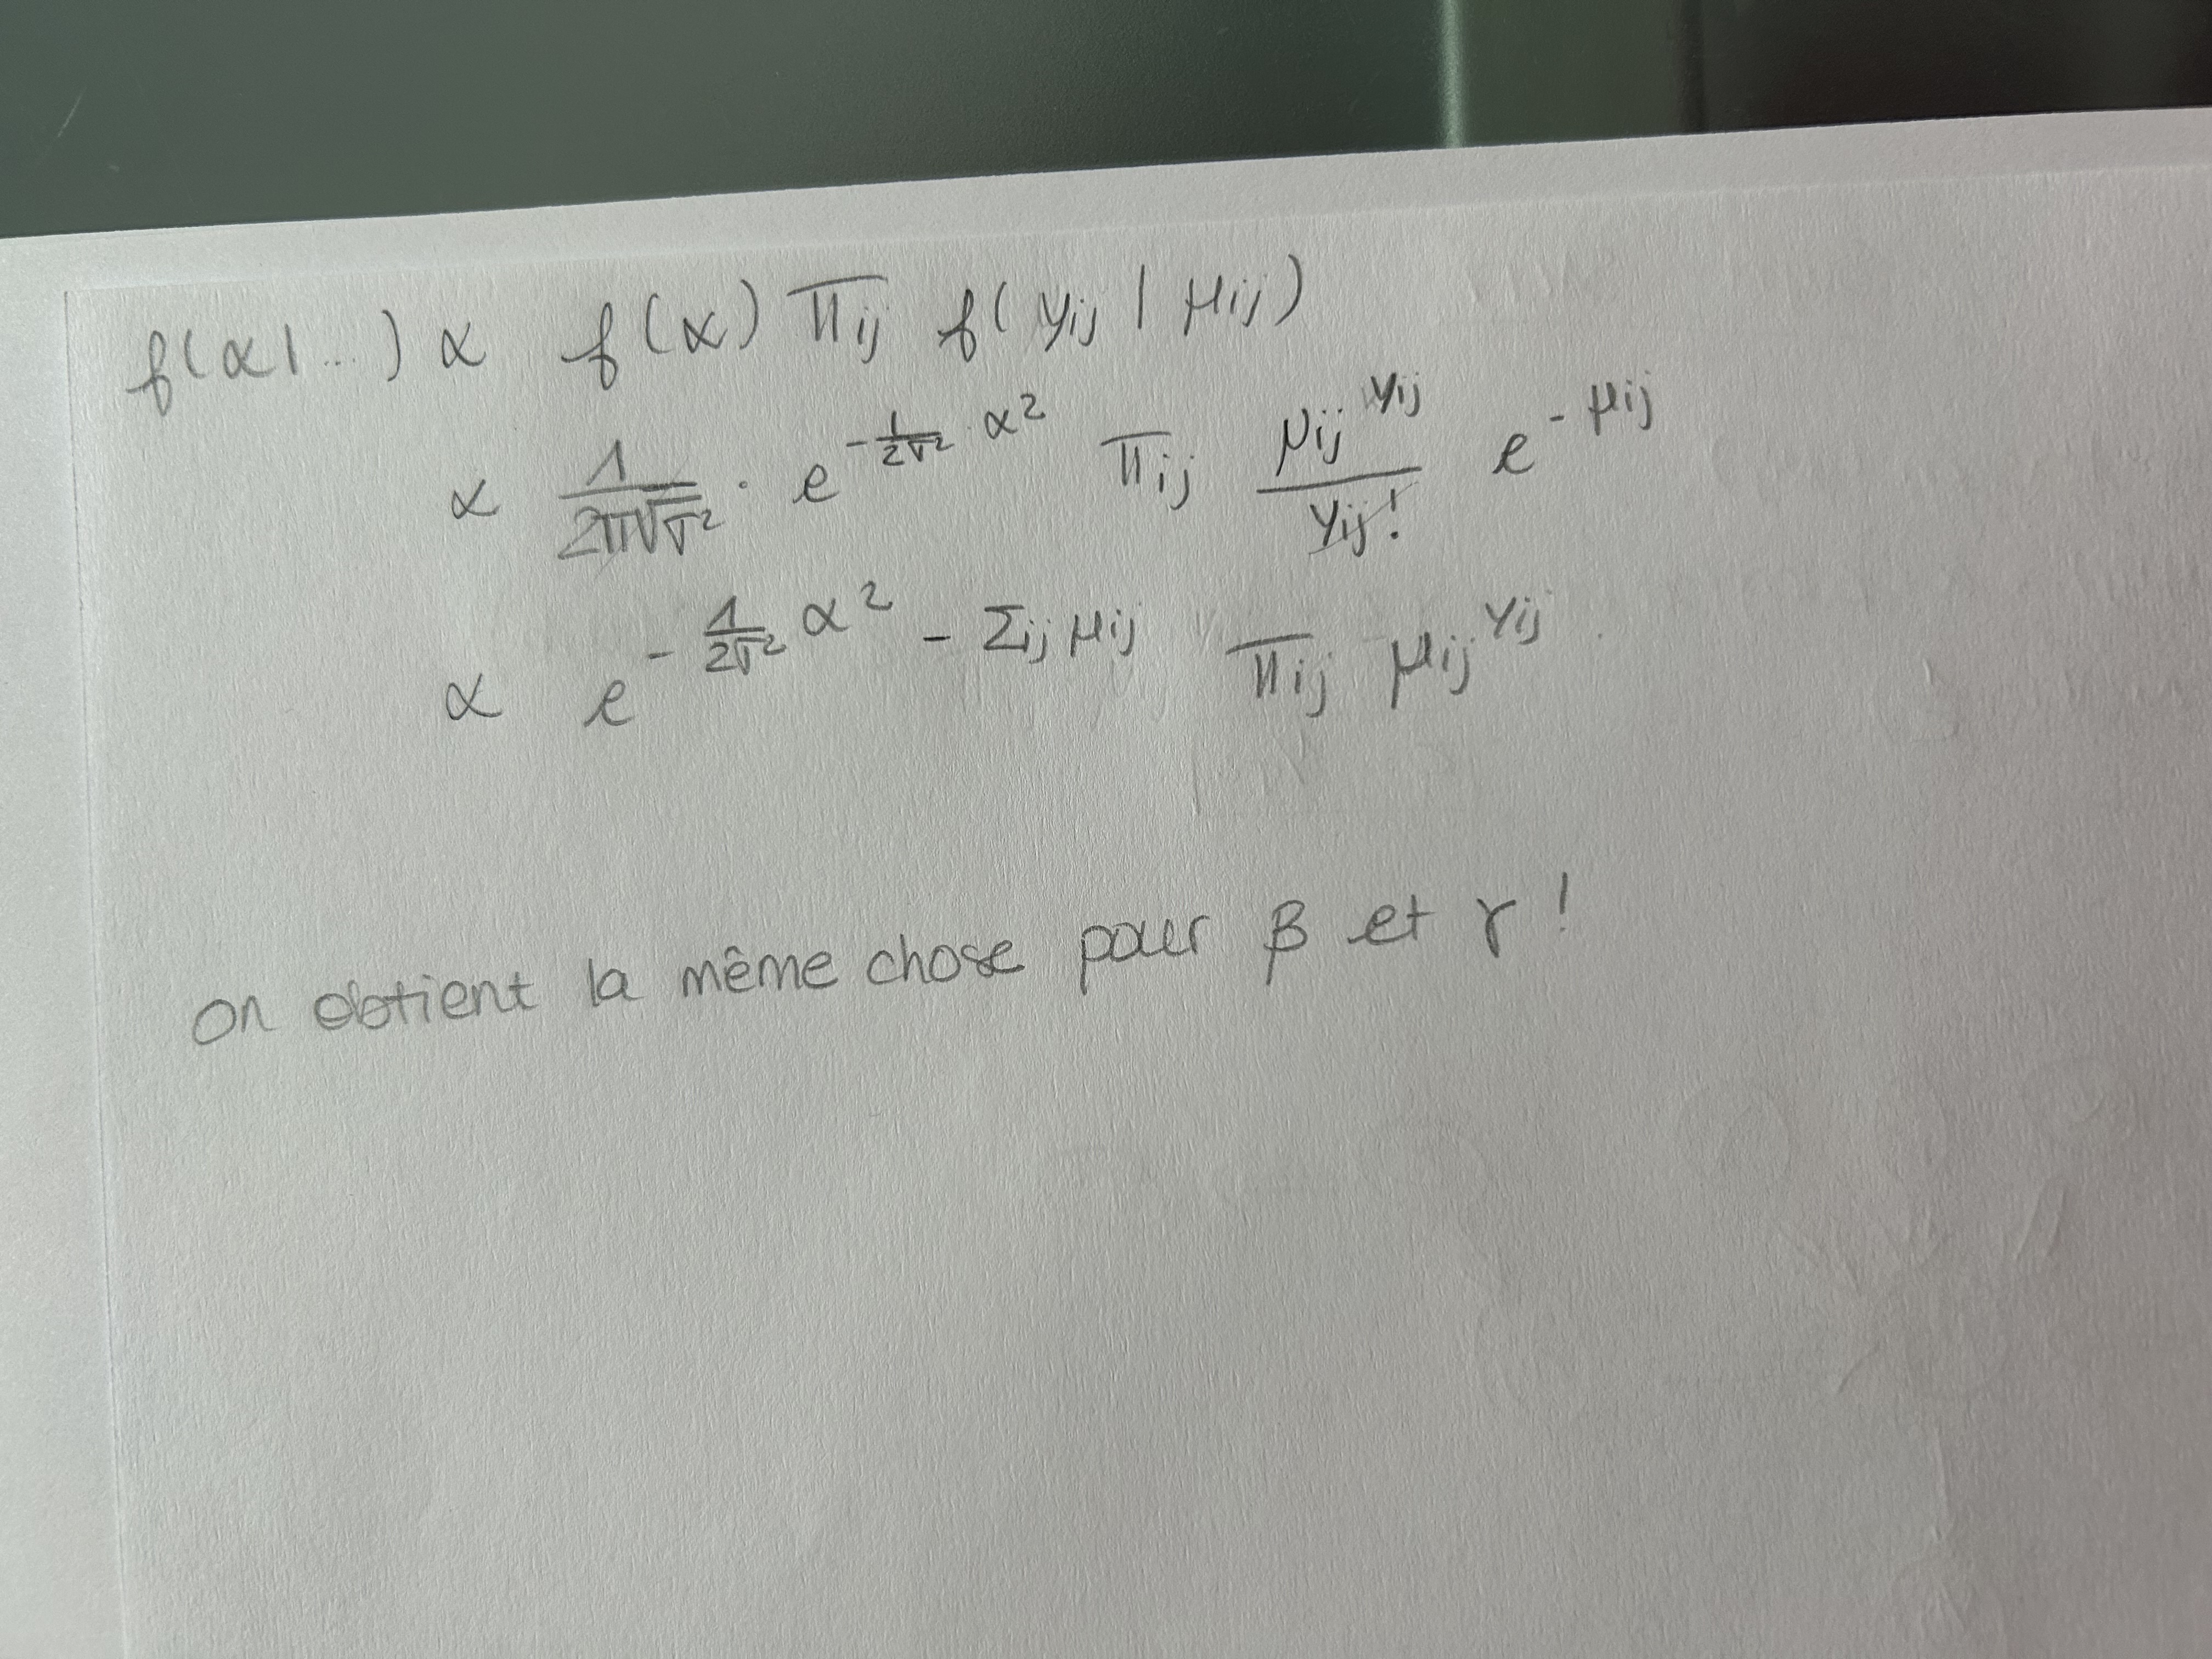 f(α|...) ∝ f(α) Π_ij f(y_ij | μ_ij)
∝ 1/(2π√σ²) · e^(-1/(2σ²) · α²) Π_ij μ_ij^(y_ij)/y_ij! e^(-μ_ij)
∝ e^(-1/(2σ²) α² - Σ_ij μ_ij) Π_ij μ_ij^(y_ij)
On obtient la même chose pour β et γ !